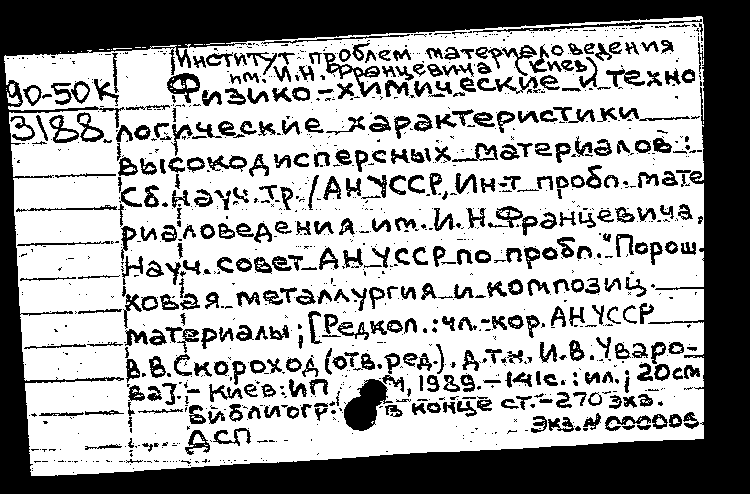 Институт проблем материаловедения
им. И.Н. Францевича (Киев)
90-50К
Физико-химические и техно
3188
логические характеристики
высокодисперсных материалов:
Сб. науч. тр. / АН УССР, Ин-т пробл. мате
риаловедения им. И.Н. Францевича,
Науч. совет АН УССР по пробл. "Порош.
ковая металлургия и композиц.
материалы; [Редкол.: чл.-кор. АН УССР
В.В. Скороход (отв. ред.), д.т.н. И.В. Уваро-
ва]. - Киев: ИП М, 1989. - 141с.: ил.; 20см
Библиогр: в конце ст. - 270 экз.
Экз. № 000006
ДСП